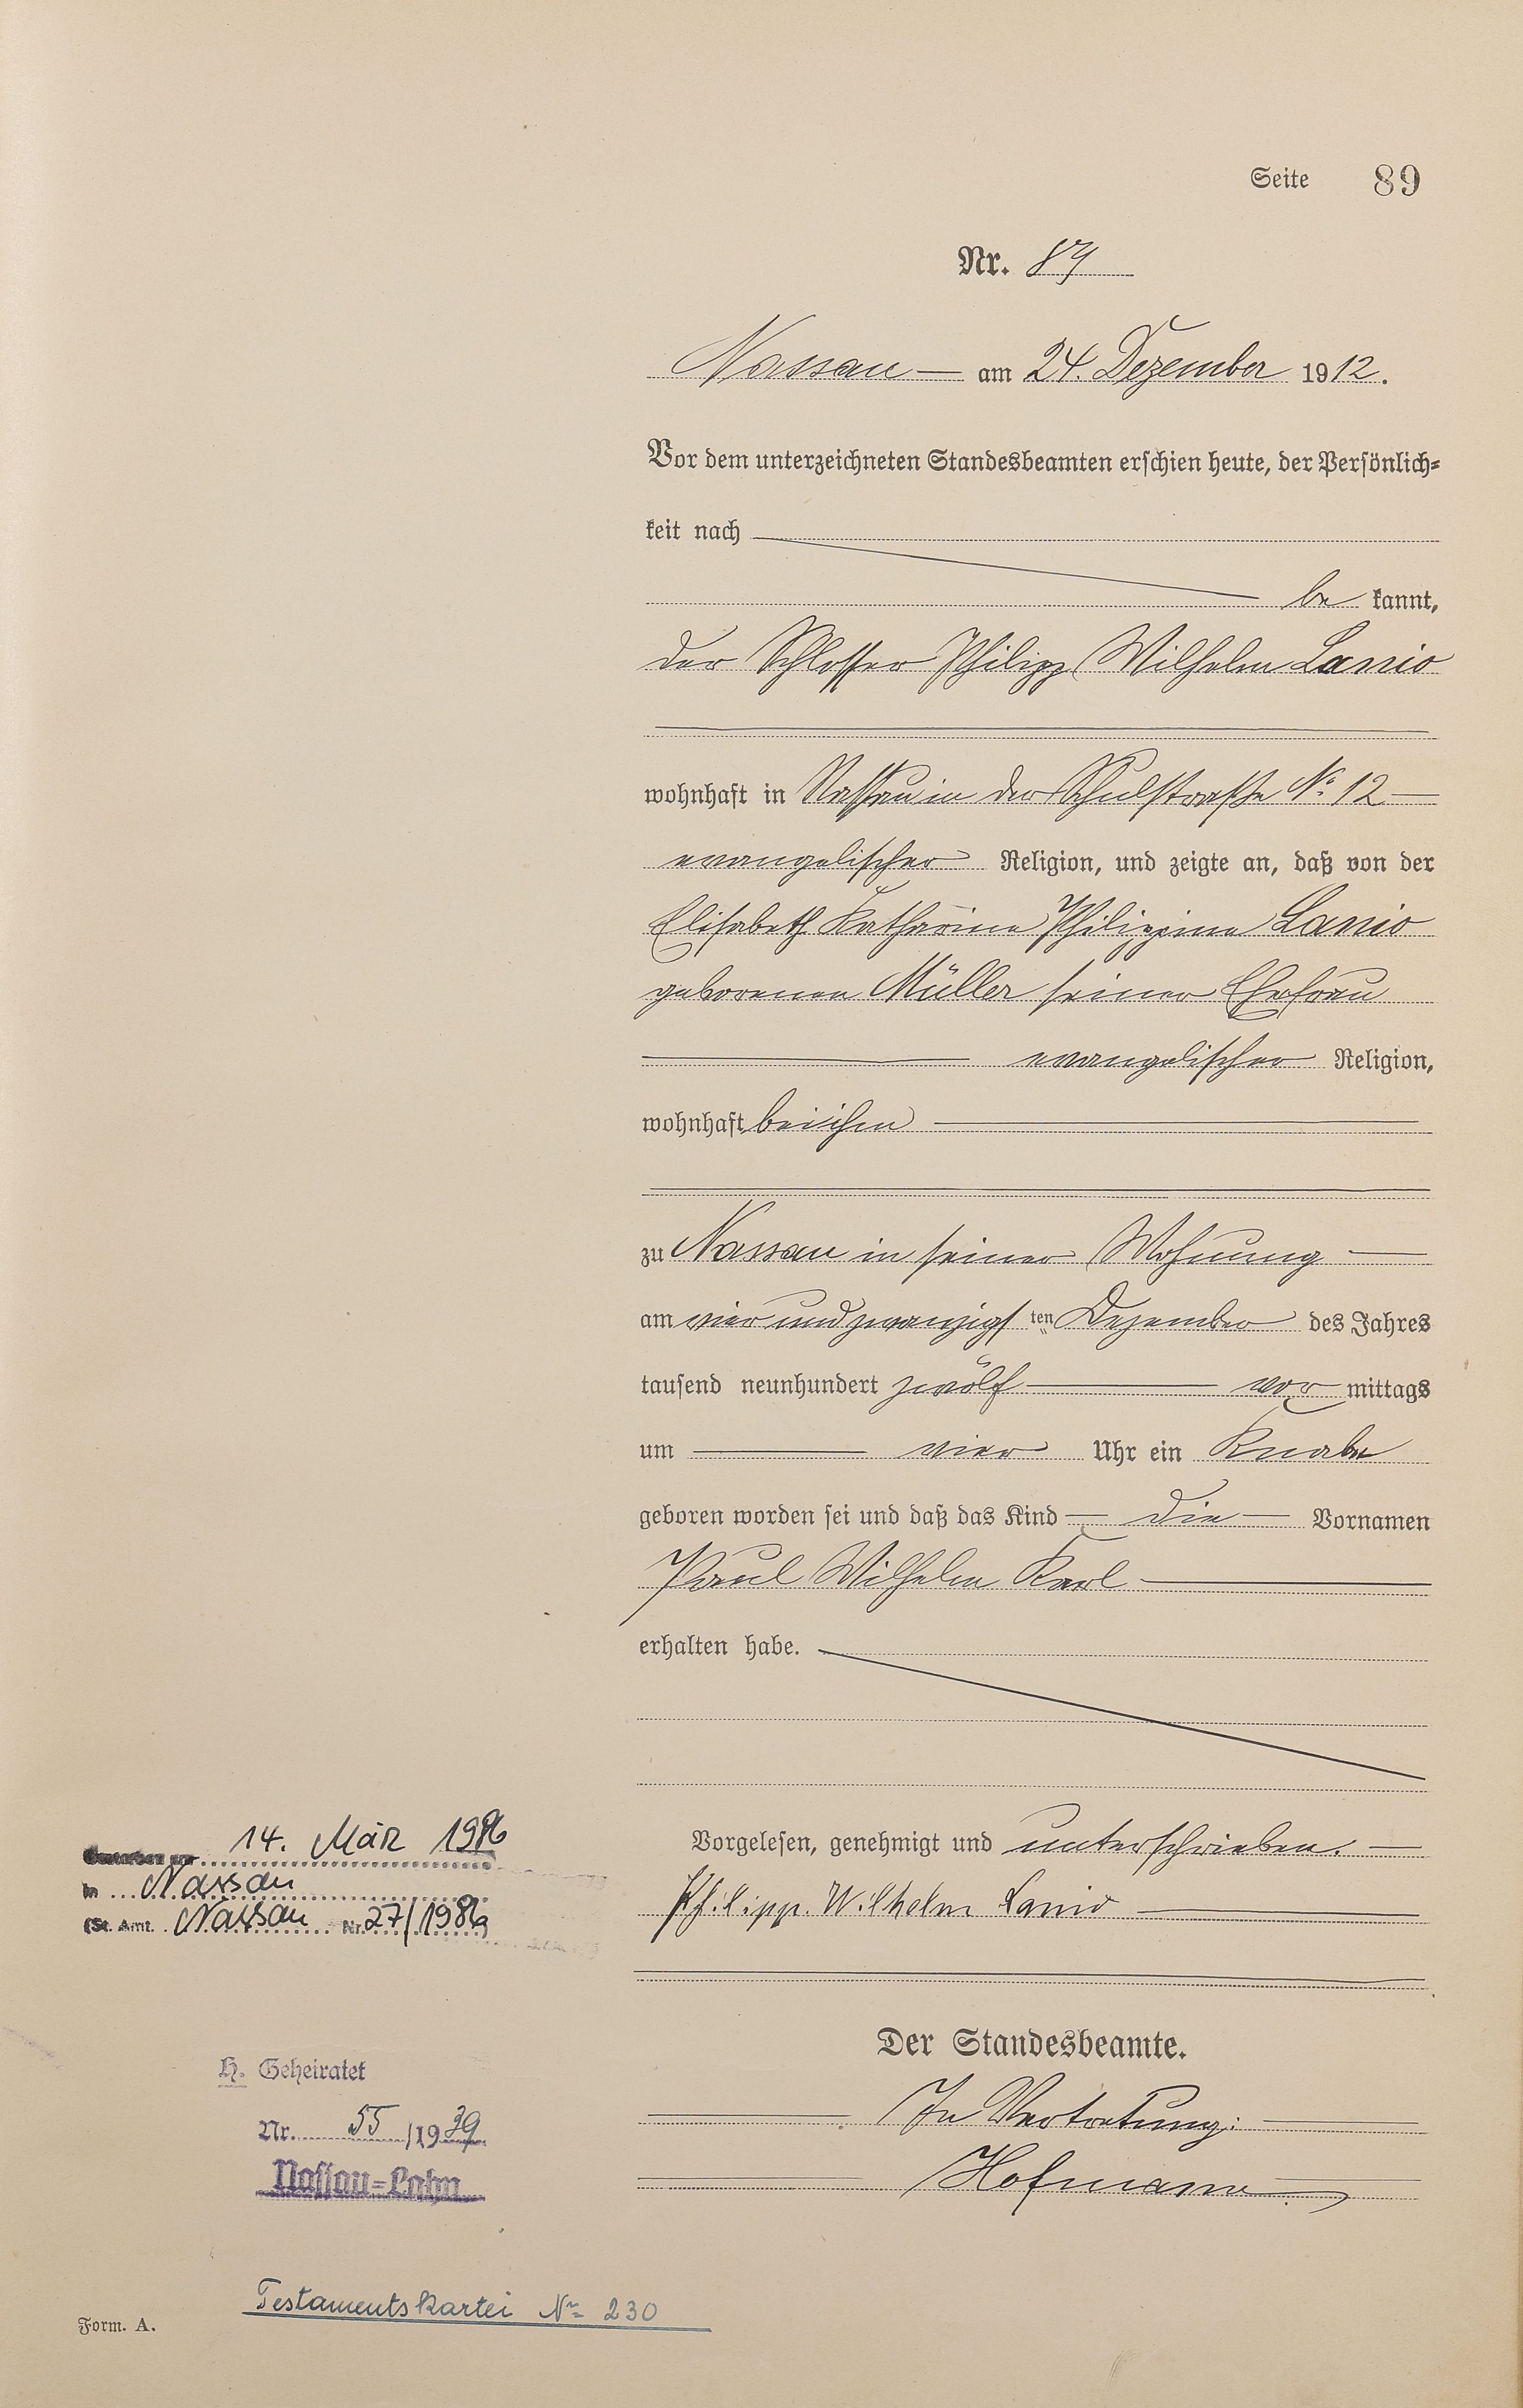 Seite 89
Nr. 89
Nassau am 24. Dezember 1912.
Vor dem unterzeichneten Standesbeamten erschien heute, der Persönlich-
keit nach
be kannt,
der Schlosser Philipp Wilhelm Lanio
wohnhaft in Nassau in der Schulstraße No. 12
evangelischer Religion, und zeigte an, daß von der
Elisabeth Katharina Philippina Lanio
geborenen Müller seiner Ehefrau
evangelischer Religion,
wohnhaft bei ihm
zu Nassau in seiner Wohnung
am vier und zwanzigsten Dezember des Jahres
tausend neunhundert zwölf vor mittags
um vier Uhr ein Knabe
geboren worden sei und daß das Kind die Vornamen
Paul Wilhelm Karl
erhalten habe.
Vorgelesen, genehmigt und unterschrieben.
Philipp Wilhelm Lanio
Der Standesbeamte.
In Vertretung:
Hofmann
Gestorben am 14. März 1986
in Nassau
(St. Amt. Nassau Nr. 27/1986)
H. Geheiratet
Nr. 55/1939
Nassau-Lahn
Testamentskartei Nr. 230
Form. A.